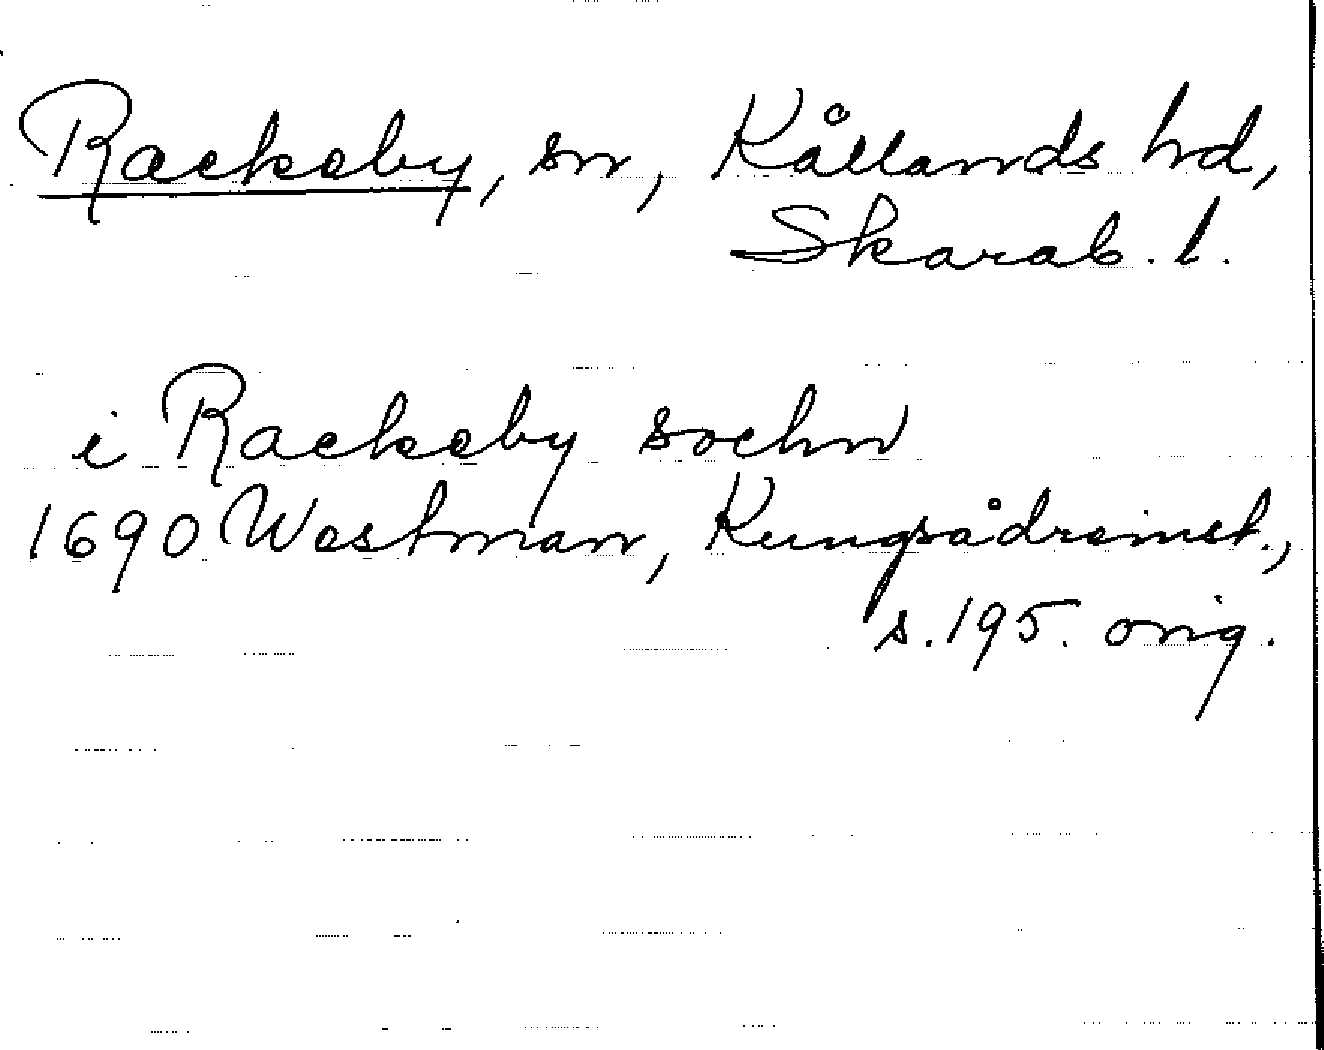 Rackeby, sn, Kållands hd,
Skarab. l.
i Rackeby sochn
1690 Westman, Kungsådreinst.,
s. 195. orig.